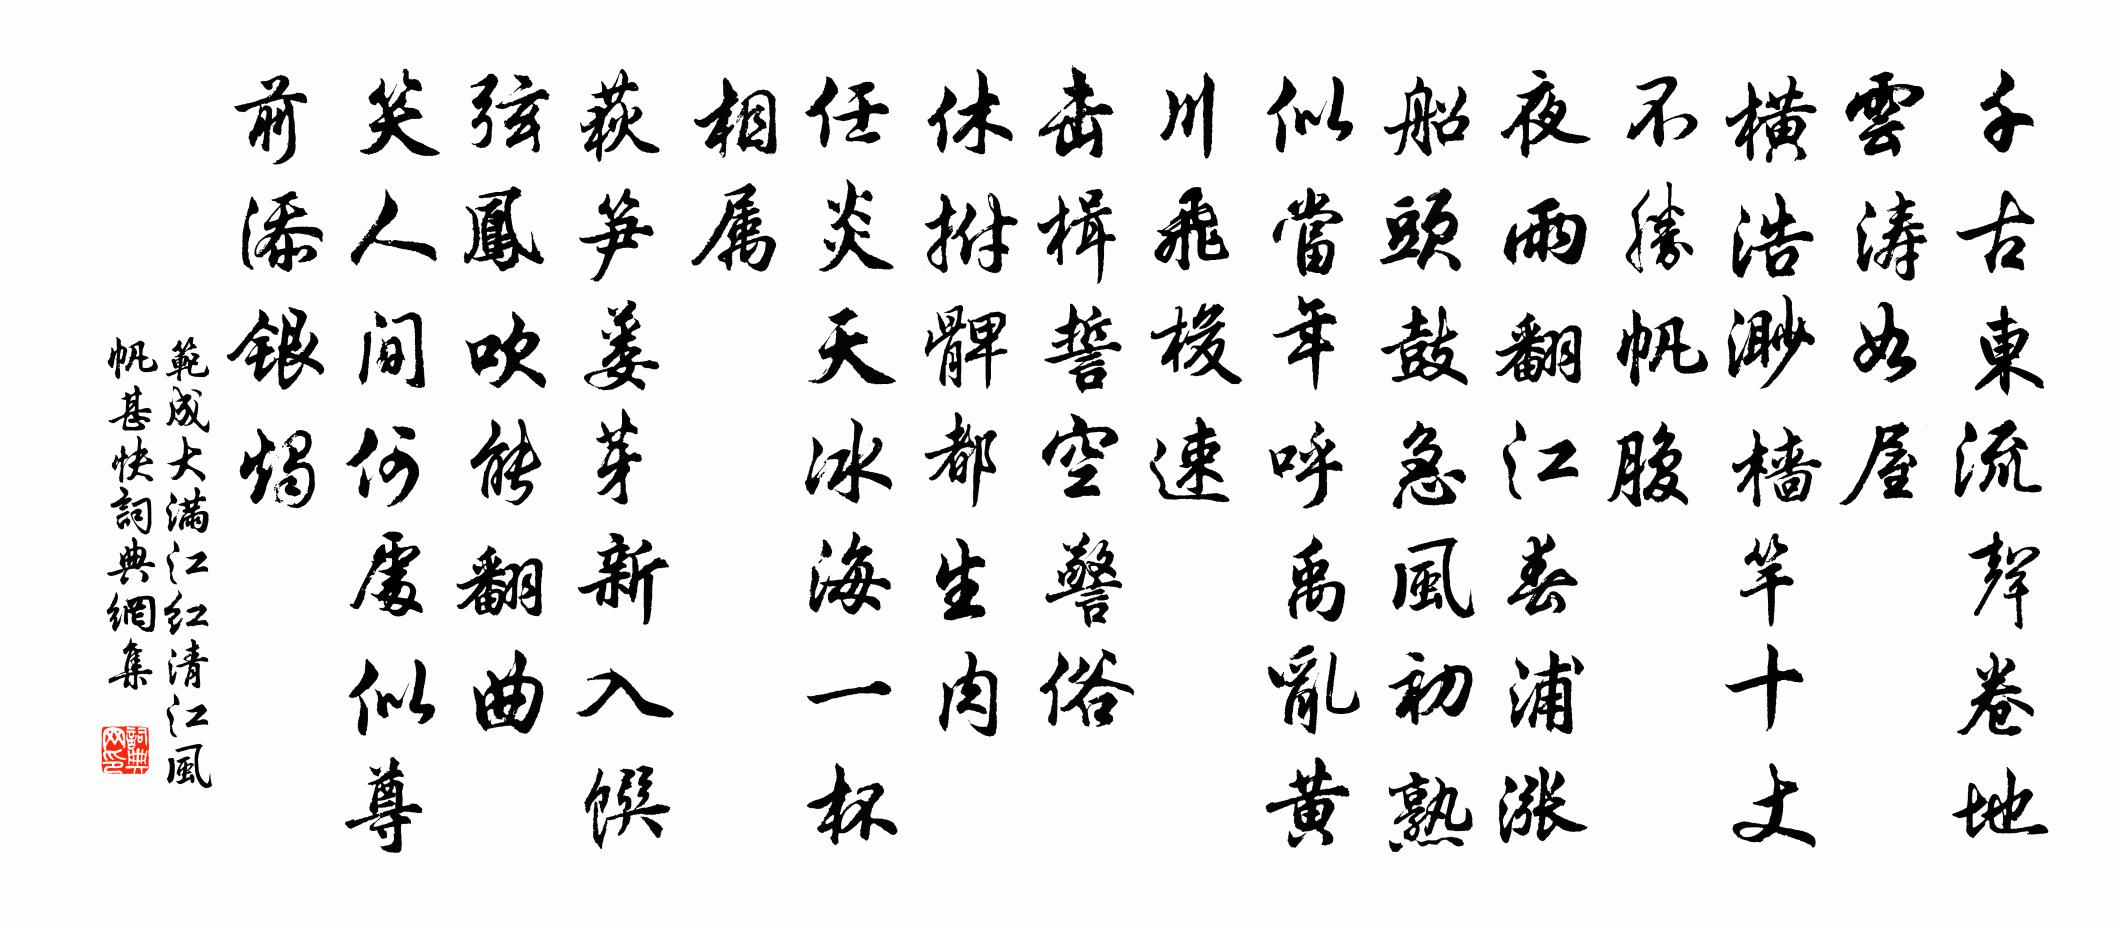 千古東流聲卷地
雲涛如屋
橫浩渺檣竿十丈
不勝帆腹
夜雨翻江春浦漲
船頭鼓急風初熟
似當年呼禹亂黄
川飛梭速
击楫誓空警俗
休拊髀都生肉
任炎天冰海一杯
相属
荻笋蒌芽新入馔
弦鳳吹能翻曲
笑人間何處似尊
前添銀燭
範成大满江红清江風
帆甚快詞典網集
詞典网印